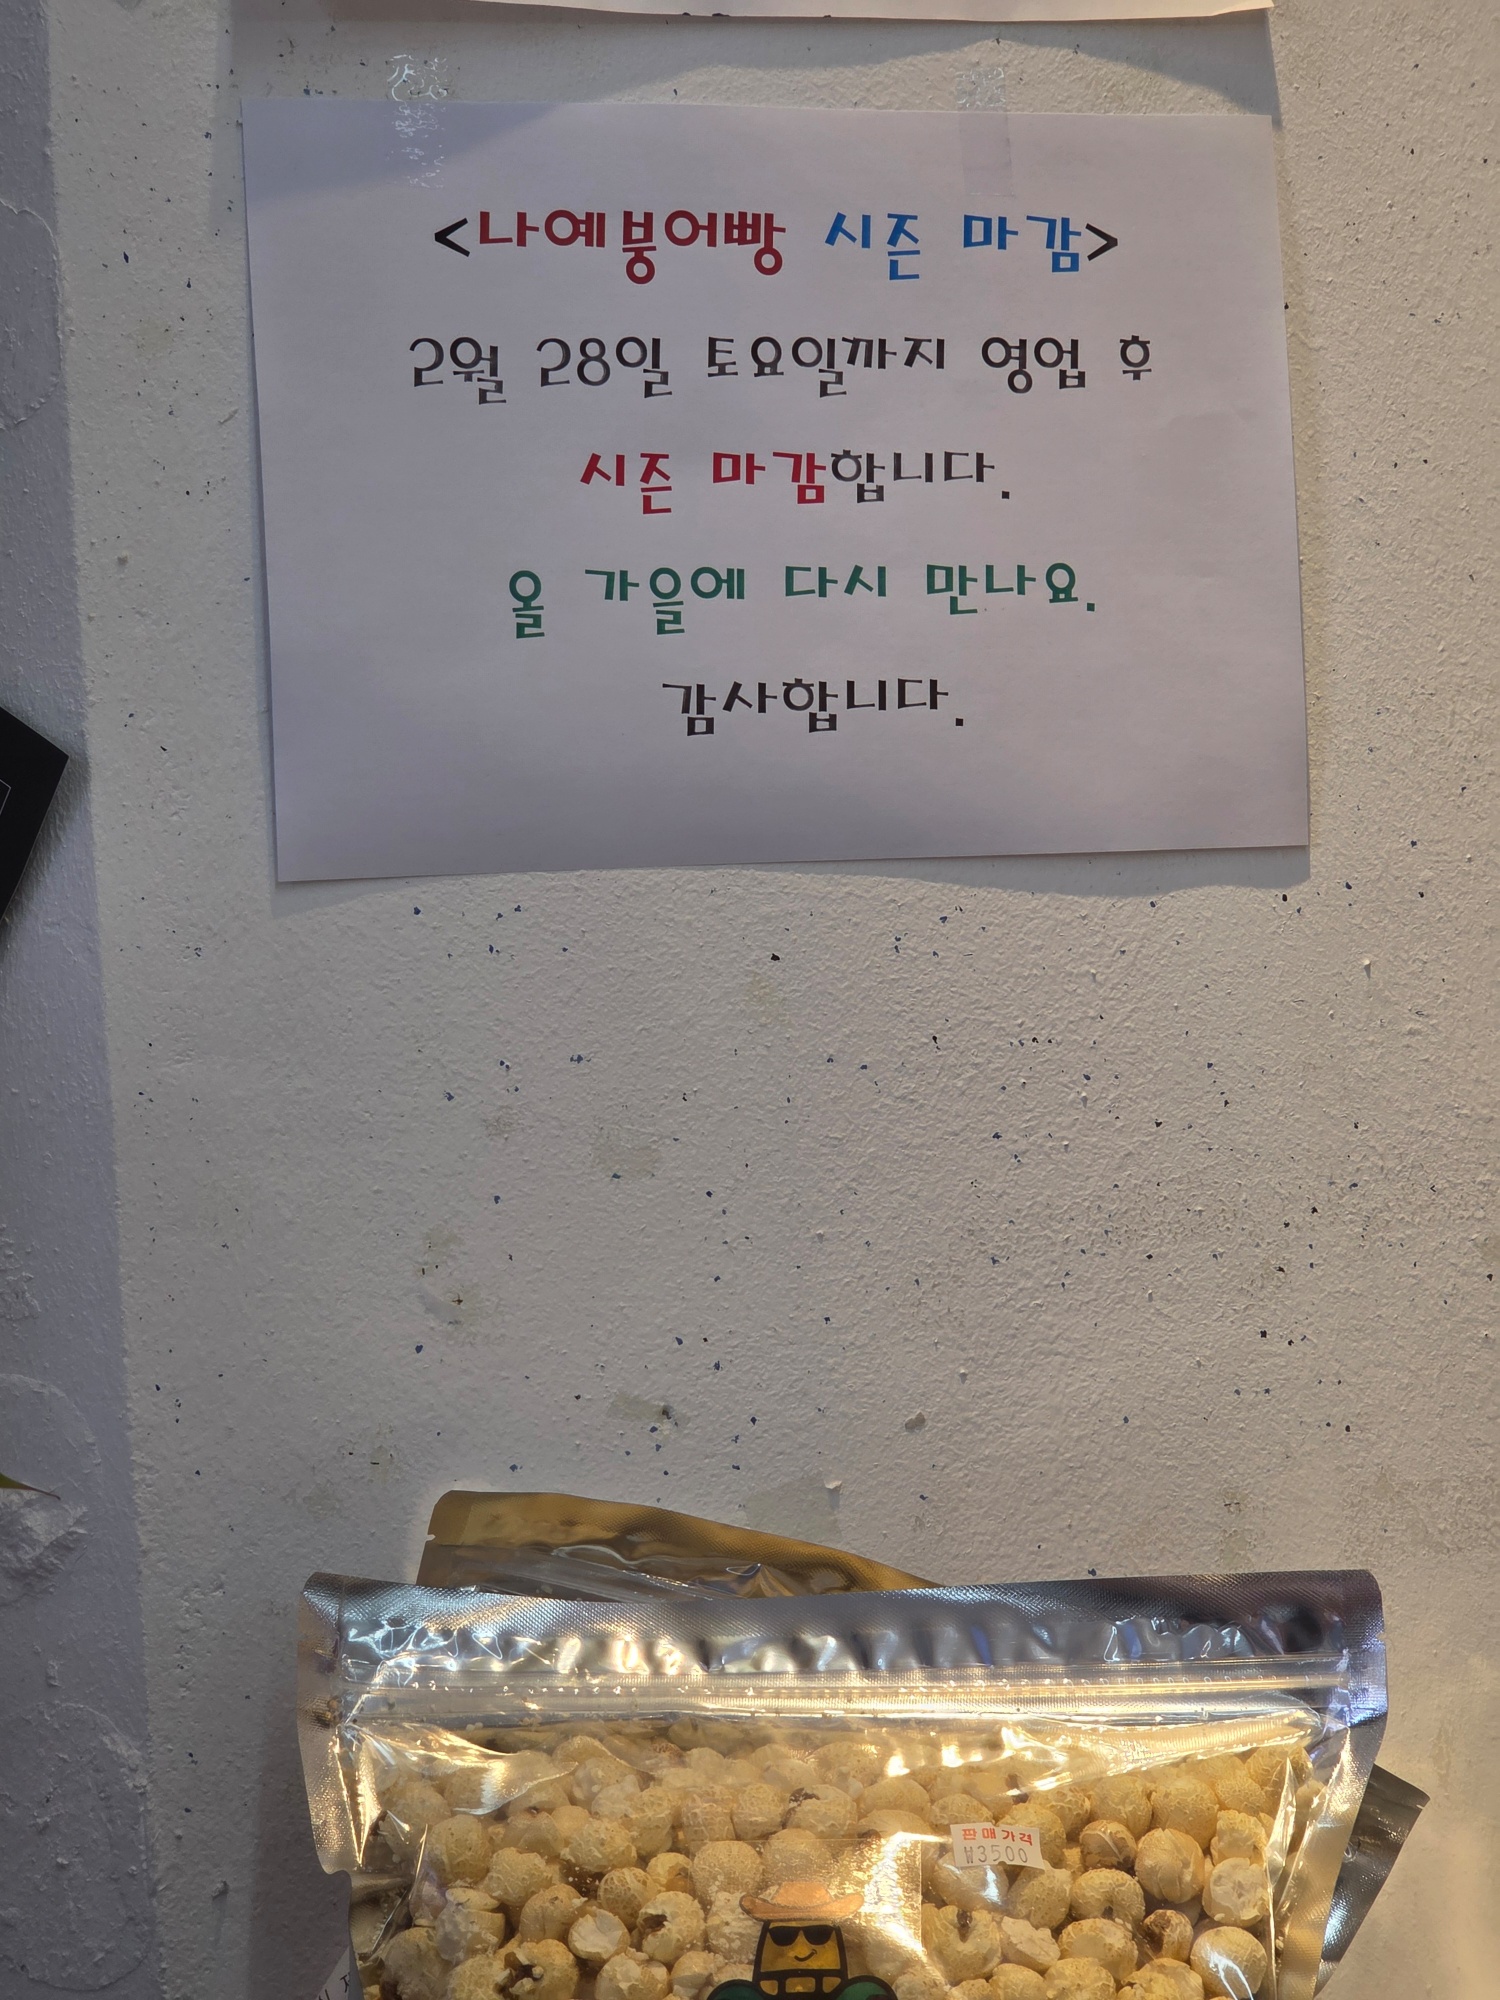 <나예붕어빵 시즌 마감>
2월 28일 토요일까지 영업 후
시즌 마감합니다.
올 가을에 다시 만나요.
감사합니다.
판매가격
₩3500